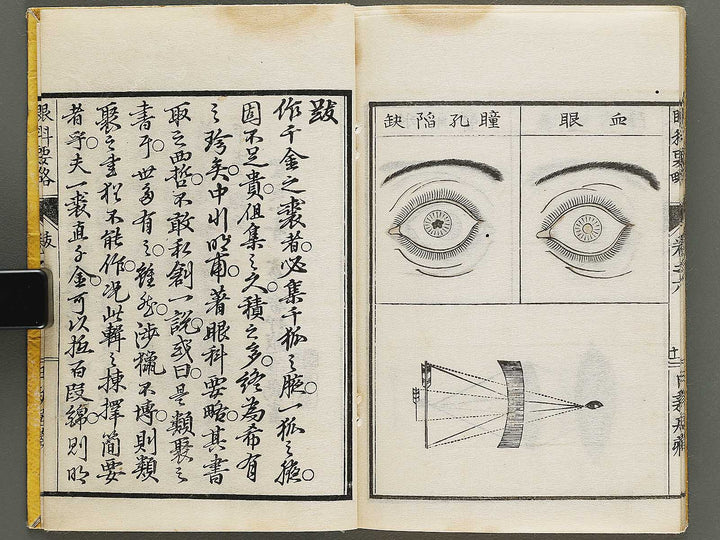 血眼
瞳孔陥缺
眼科要略
跋
作千金之裘者必集千狐之腋一狐之腋
固不足貴但集之久積之多終為希有
之珍矣中川明甫著眼科要略其書
取之西哲不敢私創一説或曰是類聚之
書于世多有之雖然渉獵不博則類
聚之書猶不能作况此輯之揀擇簡要
者乎夫一裘直千金可以抵百段綿則明
眼科要略
跋